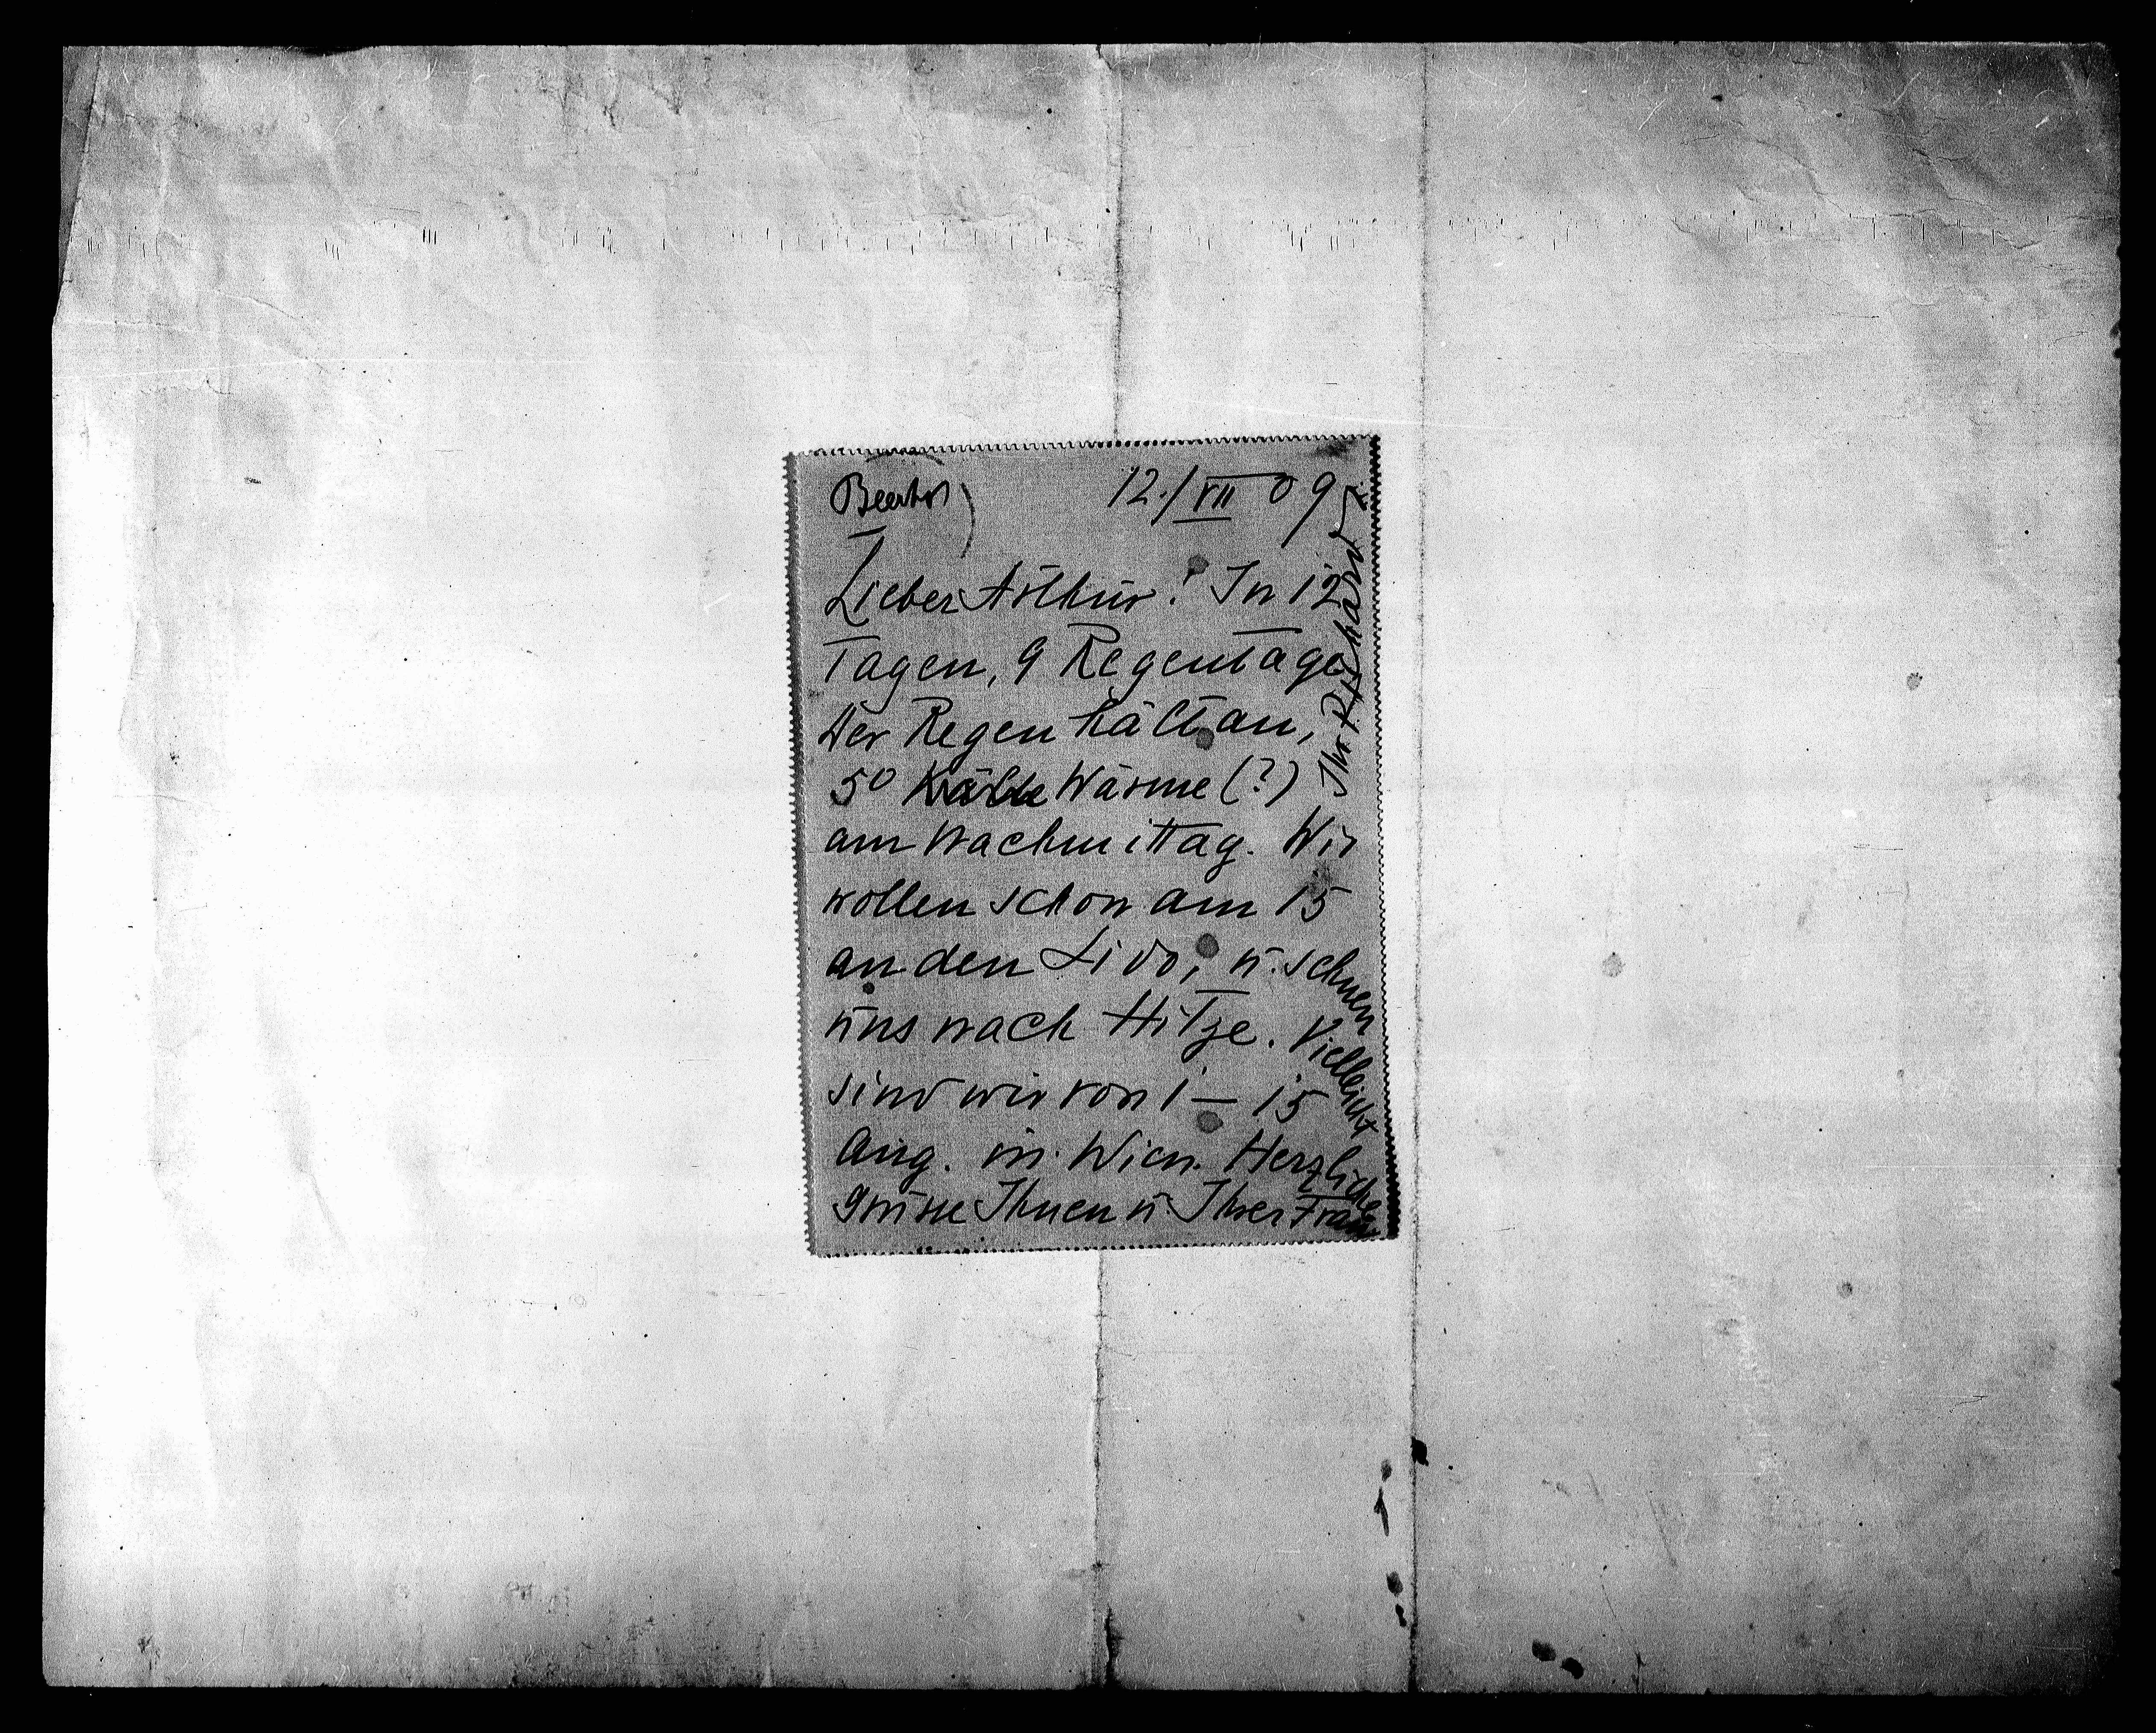 12./VII 09
Lieber Arthur! In 12
Tagen, 9 Regentage
Der Regen hält an,
5° Kälte Wärme (?)
am Nachmittag. Wir
wollen schon am 15
an den Lido, u. sehnen
uns nach Hitze. Vielleicht
sind wir von 1 – 15
Aug. in Wien. Herzliche
Grüsse Ihnen u Ihrer Frau
Ihr Richard